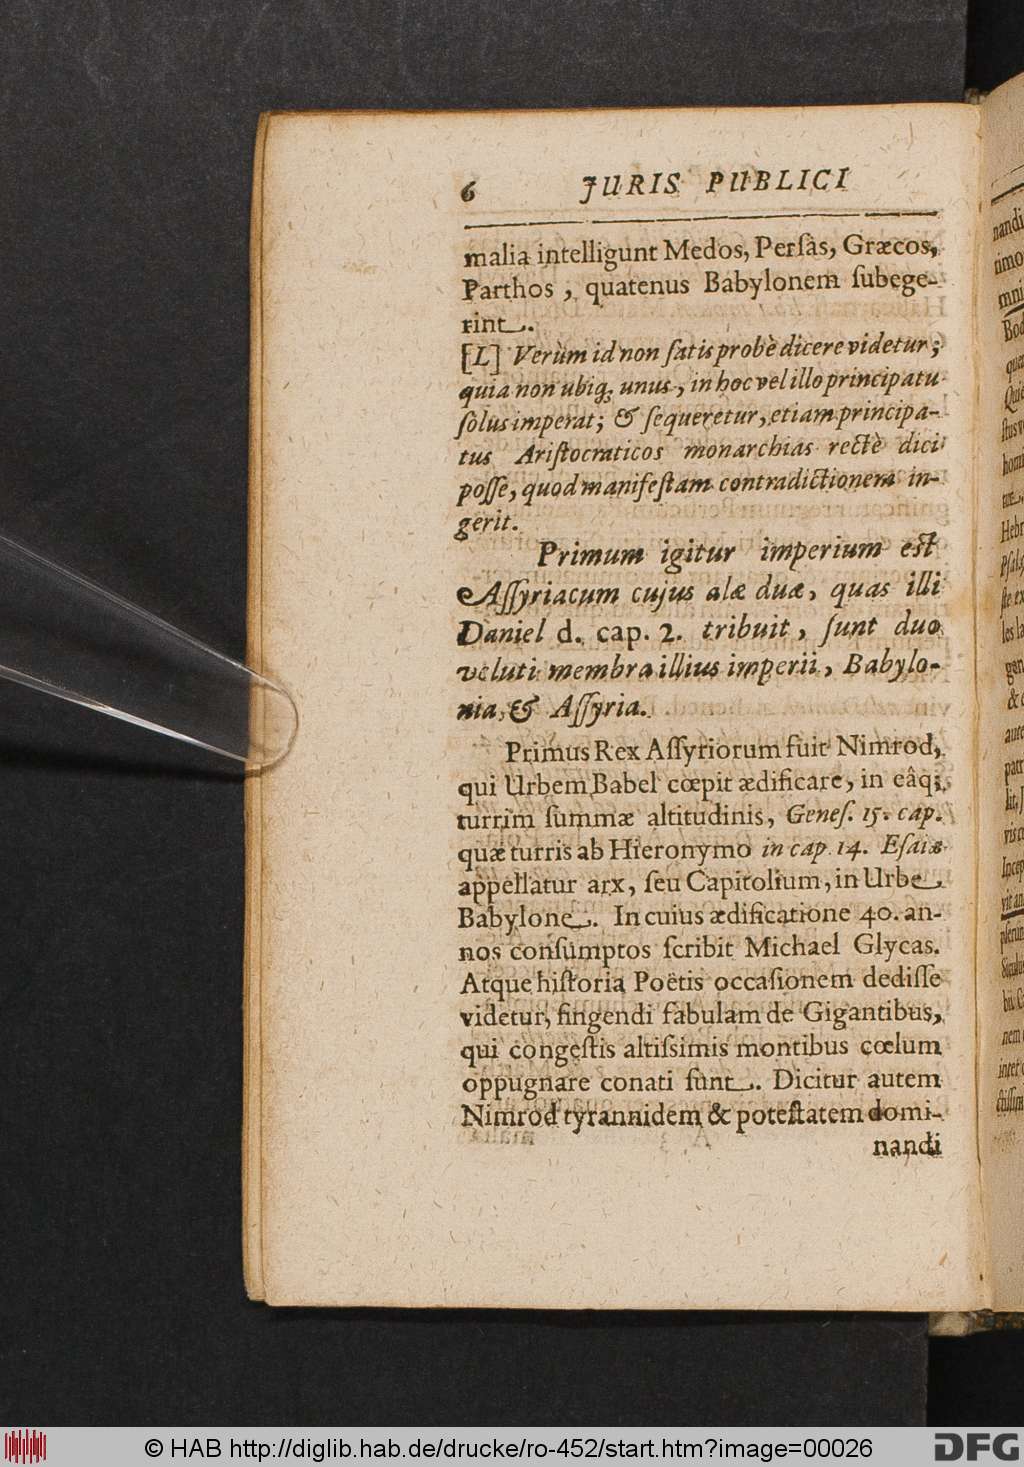 6 JURIS PUBLICI
malia intelligunt Medos, Persâs, Græcos,
Parthos , quatenus Babylonem ſubege-
rint.
[L] Verùm id non ſatis probè dicere videtur;
quia non ubiq; unus, in hoc vel illo principatu
ſolus imperat; & ſequeretur, etiam principa-
tus Ariſtocraticos monarchias rectè dici
poſſe, quod manifeſtam contradictionem in-
gerit.
Primum igitur imperium eſt
Aſſyriacum cujus alæ duæ, quas illi
Daniel d. cap. 2. tribuit, ſunt duo
veluti membra illius imperii, Babylo-
nia, & Aſſyria.
Primus Rex Aſſyriorum fuit Nimrod,
qui Urbem Babel cœpit ædificare, in eâq;
turrim ſummæ altitudinis, Geneſ. 15. cap.
quæ turris ab Hieronymo in cap. 14. Eſaiæ
appellatur arx, ſeu Capitolium, in Urbe
Babylone. In cuius ædificatione 40. an-
nos conſumptos ſcribit Michael Glycas.
Atque hiſtoria Poëtis occaſionem dediſſe
videtur, fingendi fabulam de Gigantibus,
qui congeſtis altiſsimis montibus cœlum
oppugnare conati ſunt. Dicitur autem
Nimrod tyrannidem & poteſtatem domi-
nandi
nandi
Bod
Hebr
© HAB http://diglib.hab.de/drucke/ro-452/start.htm?image=00026
DFG